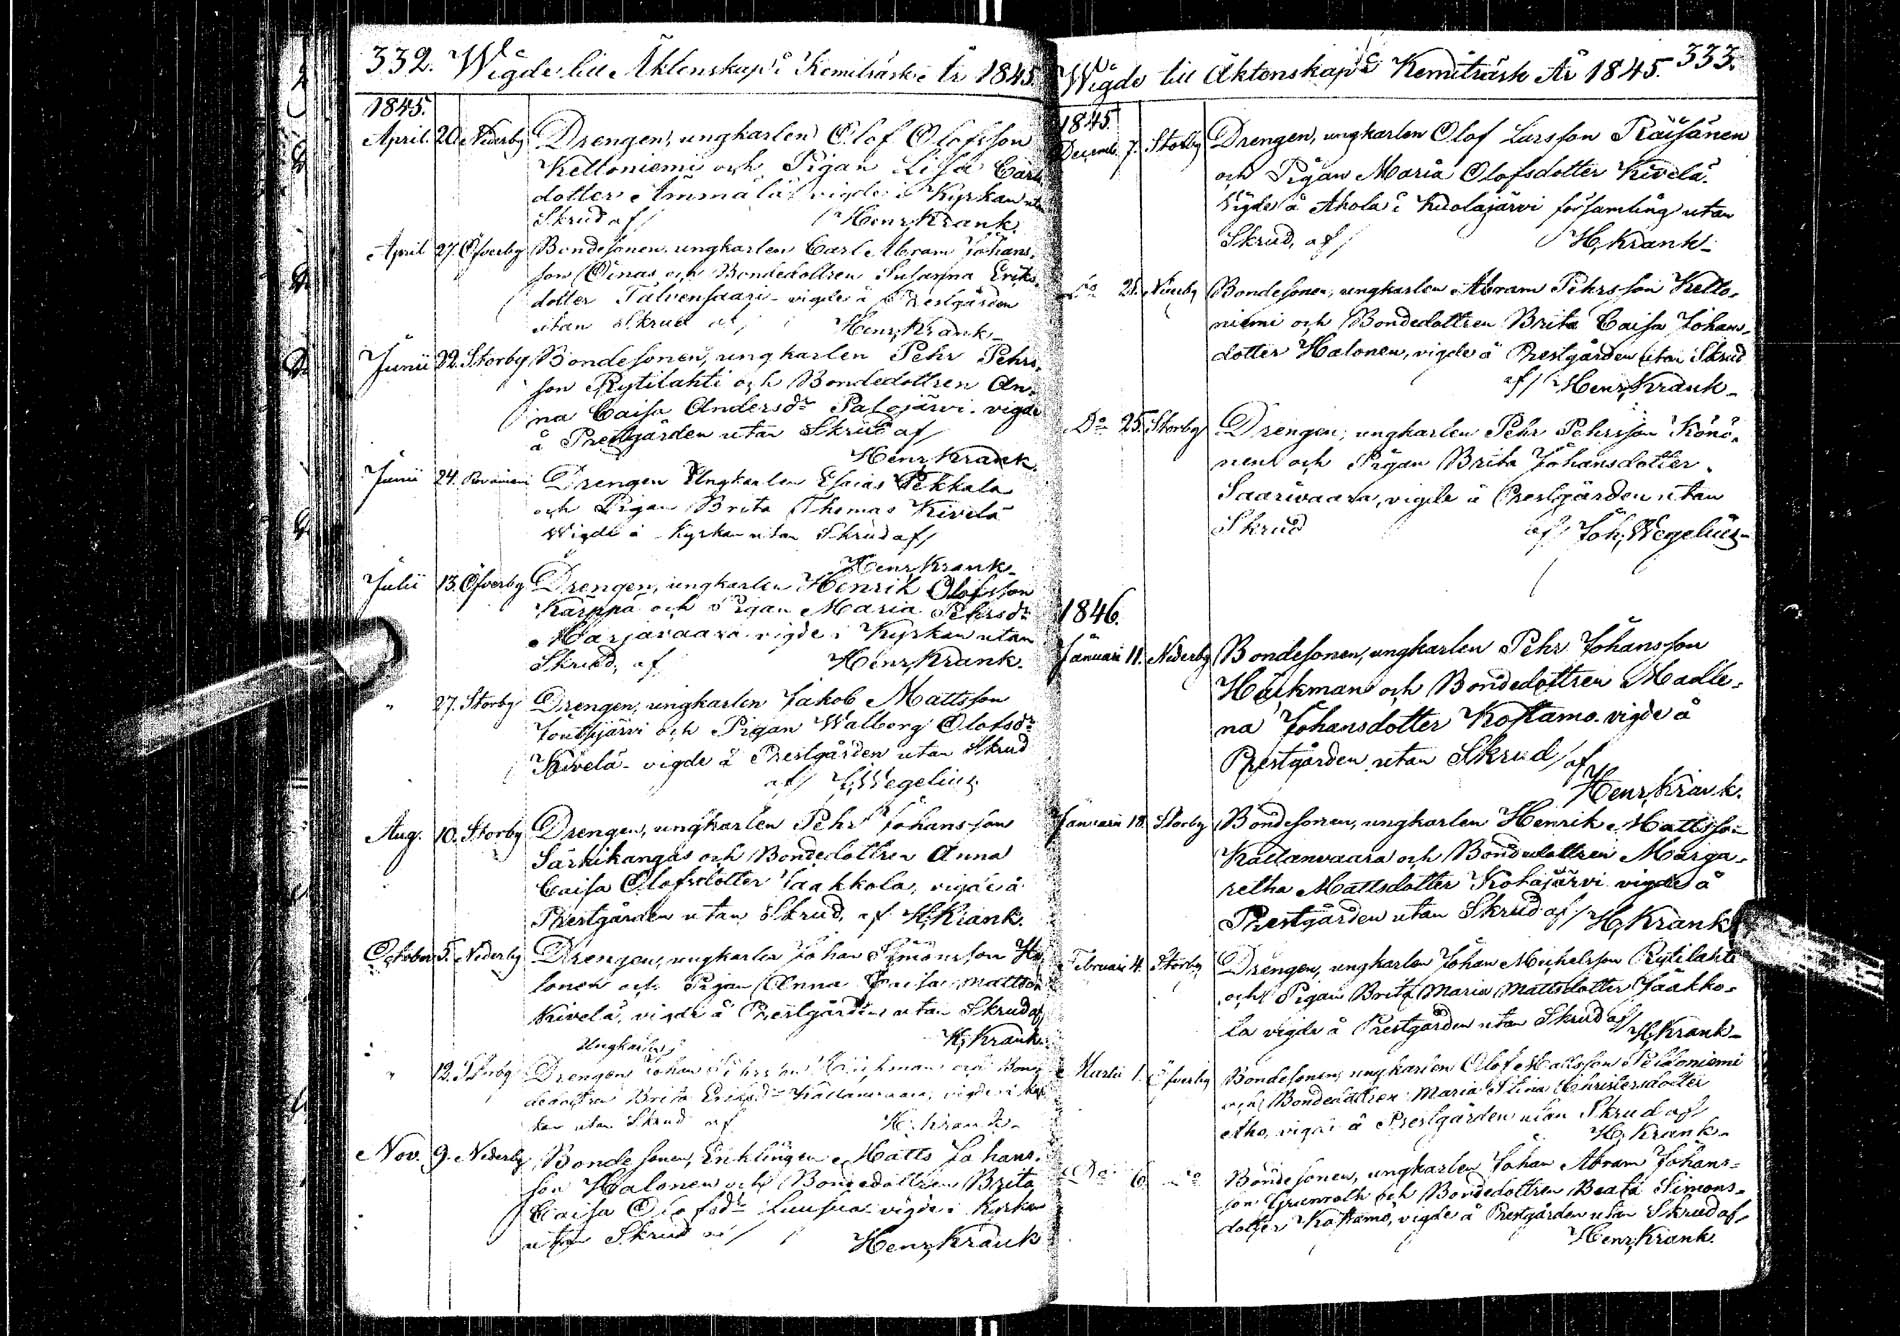 332. Wigde till Äktenskap i Kemiträsk År 1845.
1845.
April. 20. Nederby Drengen, ungkarlen Olof Olofsson
Keltoniemi och Pigan Lisa Carls
dotter Ämmälä vigde i Kyrkan utan
Skrud af / Henr. Krank.
April 27. Öfverby Bondesonen ungkarlen Carl Abram Johans.
son Oinas och Bondedottren Susanna Eriks.
dotter Talvensaari vigde å Prestgården
utan Skrud af / Henr. Krank.
Junii 22. Storby Bondesonen, ungkarlen Pehr Pehrs.
son Rytilahti och Bondedottren An,
na Caisa Andersdr Palojärvi. vigde
å Prestgården utan Skrud af /
Henr. Krank.
Junii 24. Rovaniemi Drengen Ungkarlen Esaias Pekkala
och Pigan Brita Thomas Kivelä
Wigde i Kyrkan utan Skrud af /
Henr. Krank.
Julii 13. Öfverby Drengen, ungkarlen Henrik Olofsson
Karppa och Pigan Maria Pehrsdr
Harjavaara vigde i Kyrkan utan
Skrud, af / Henr. Krank.
" 27. Storby Drengen, ungkarlen Jakob Mattsson
och Pigan Walborg Olofsdr
Kivelä - vigde å Prestgården utan Skrud
af / Wegelius
Aug. 10. Storby Drengen, ungkarlen Pehr Johansson
Särkikangas och Bondedottren Anna
Caisa Olofsdotter Jaakkola, vigde å
Prestgården utan Skrud, af H. Krank.
October 5. Nederby Drengen, ungkarlen Johan Simonsson Ha
lonen och Pigan Anna Caisa Mattsdr
Kivelä, vigde å Prestgården utan Skrud af
H. Krank.
Ungkarlen
" 12. Storby Drengen Johan Pehrsson och Bon
dedottren Brita Eriksdr Kallanvaara, vigde i Kyr
kan utan Skrud af H. Krank.
Nov. 9. Nederby Bondesonen, Enklingen Matts Johans.
son Halonen och Bondedottren Brita
Caisa Olofsdr Luusua vigde i Kyrkan
utan Skrud af / Henr. Krank
Wigde till Äktenskap i Kemiträsk År 1845. 333.
1845.
Decemb. 7. Storby Drengen, ungkarlen Olof Larsson Räisänen
och Pigan Maria Olofsdotter Kivelä.
Vigde å Ahola i Kuolajärvi församling utan
Skrud, af / H. Krank.
Do 21. Nederby Bondesonen, ungkarlen Abram Pehrsson Kelto,
niemi och Bondedottren Brita Caisa Johans,
dotter Halonen, vigde å Prestgården utan Skrud
af / Henr. Krank.
Do 25. Storby Drengen, ungkarlen Pehr Pehrsson Könö,
nen och Pigan Brita Johansdotter
Saarivaara, vigde å Prestgården utan
Skrud af / Joh. Wegelius
1846.
Januari 11. Nederby Bondesonen, ungkarlen Pehr Johansson
och Bondedottren Madle,
na Johansdotter Kostamo vigde å
Prestgården utan Skrud / af
Henr. Krank.
Januari 18. Storby Bondesonen, ungkarlen Henrik Mattsson
Kallanvaara och Bondedottren Marga,
retha Mattsdotter Kotajärvi vigde å
Prestgården utan Skrud af / H. Krank
Februari 4. Storby Drengen, ungkarlen Johan Michelsson Rytilahti
och Pigan Brita Maria Mattsdotter Jaakko,
la vigde å Prestgården utan Skrud af /
H. Krank
Martii 1. Öfverby Bondesonen, ungkarlen Olof Mattsson Peldoniemi
och Bondedottren Maria Stina Christersdotter
Aho, vigde å Prestgården utan Skrud af /
H. Krank
Do 6. Do Bondesonen, ungkarlen Johan Abram Johans-
son Grunroth och Bondedottren Beata Simons-
dotter Kostamo, vigde å Prestgården utan Skrud af /
Henr. Krank.